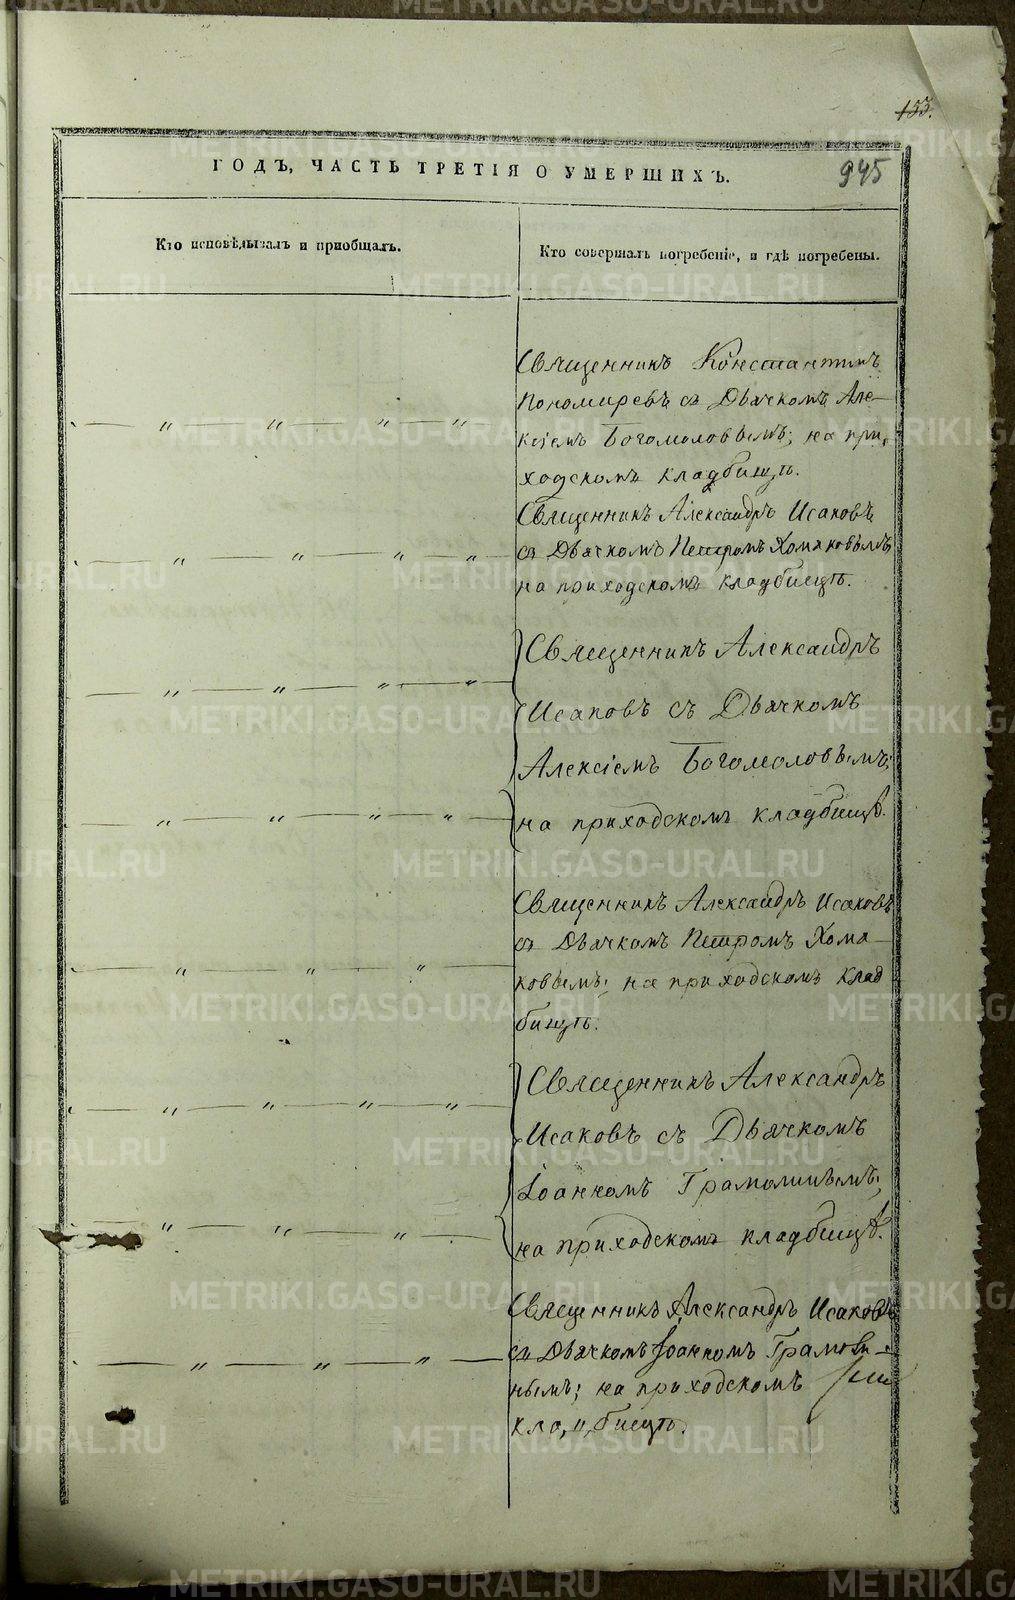 133.
ГОДЪ, ЧАСТЬ ТРЕТІЯ О УМЕРШИХЪ.
945
Кто исповѣдывалъ и пріобщалъ.
Кто совершалъ погребеніе, и гдѣ погребены.
Священникъ Константинъ
Пономаревъ съ Дьячкомъ Але-
ксіемъ Богомоловымъ; на при-
ходскомъ кладбищѣ.
Священникъ Александръ Исаковъ
съ Дьячкомъ Петромъ Хомяковымъ
на приходскомъ кладбищѣ.
Священникъ Александръ
Исаковъ съ Дьячкомъ
Алексіемъ Богомоловымъ;
на приходскомъ кладбищѣ.
Священникъ Александръ Исаковъ
съ Дьячкомъ Петромъ Хомя-
ковымъ; на приходскомъ клад
бищѣ.
Священникъ Александръ
Исаковъ съ Дьячкомъ
Іоанномъ
на приходскомъ кладбищѣ.
Священникъ Александръ Исаковъ
съ Дьячкомъ Іоанномъ
нымъ; на приходскомъ
кладбищѣ.
METRIKI.GASO-URAL.RU